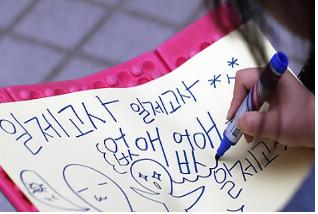 일제고사 일제고사 **
없애 없애
일제고